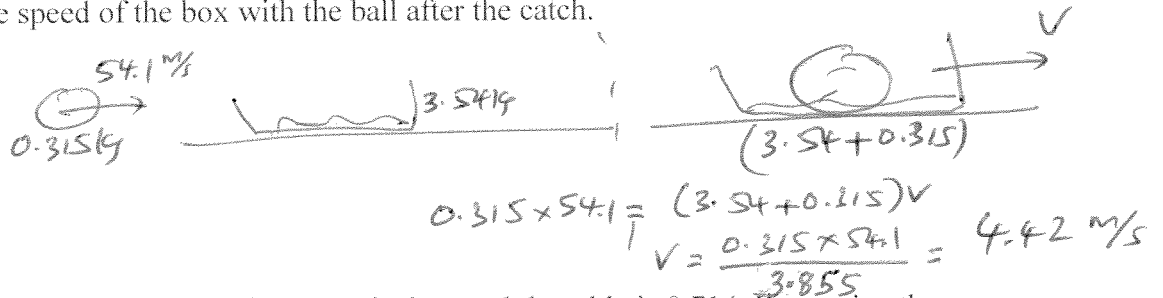 speed of the box with the ball after the catch.
54.1 m/s
V
3.54kg
0.315kg
(3.54+0.315)
0.315×54.1 = (3.54+0.315)V
V = 0.315×54.1 / 3.855 = 4.42 m/s